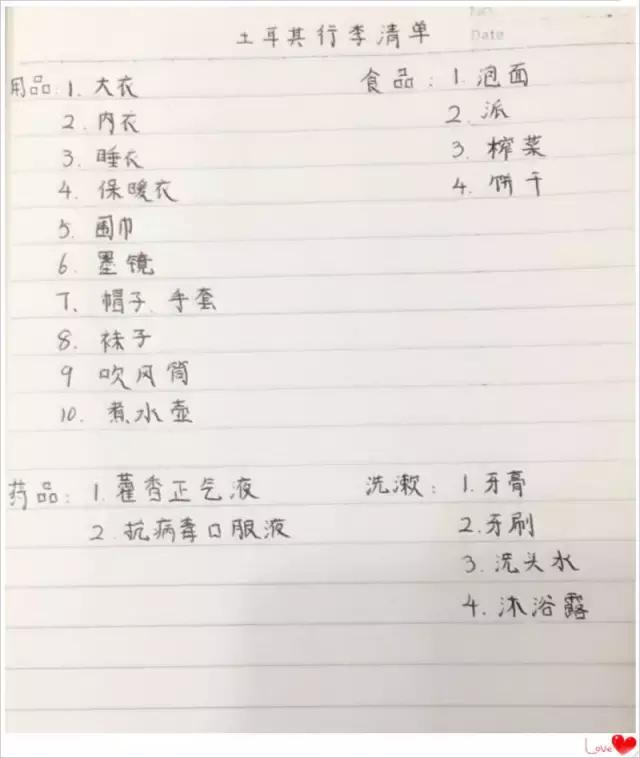 No.
Date
土耳其行李清单
用品：1. 大衣
2. 内衣
3. 睡衣
4. 保暖衣
5. 围巾
6. 墨镜
7. 帽子、手套
8. 袜子
9 吹风筒
10. 煮水壶
食品：1. 泡面
2. 派
3. 榨菜
4. 饼干
药品：1. 藿香正气液
2. 抗病毒口服液
洗漱：1. 牙膏
2. 牙刷
3. 洗头水
4. 沐浴露
Love